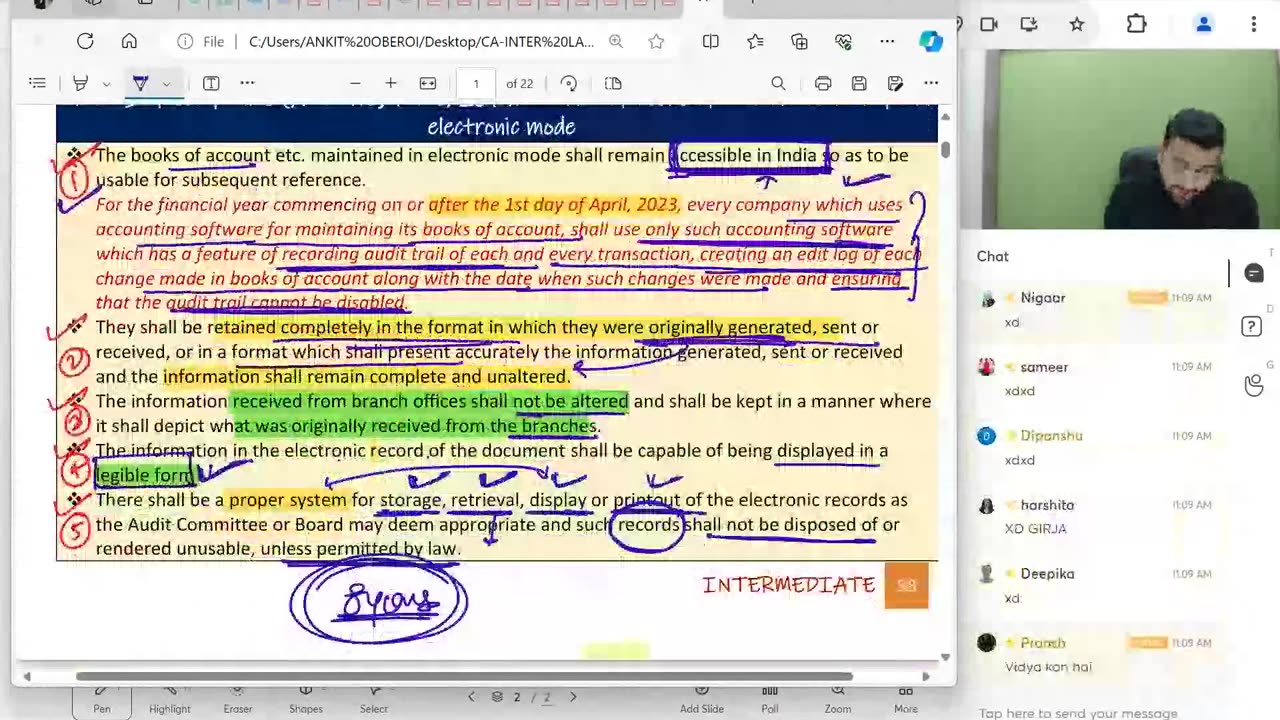 File
C:/Users/ANKIT%20OBEROI/Desktop/CA-INTER%20LA...
1 of 22
electronic mode
The books of account etc. maintained in electronic mode shall remain accessible in India so as to be
usable for subsequent reference.
For the financial year commencing on or after the 1st day of April, 2023, every company which uses
accounting software for maintaining its books of account, shall use only such accounting software
which has a feature of recording audit trail of each and every transaction, creating an edit log of each
change made in books of account along with the date when such changes were made and ensuring
that the audit trail cannot be disabled.
They shall be retained completely in the format in which they were originally generated, sent or
received, or in a format which shall present accurately the information generated, sent or received
and the information shall remain complete and unaltered.
The information received from branch offices shall not be altered and shall be kept in a manner where
it shall depict what was originally received from the branches.
The information in the electronic record of the document shall be capable of being displayed in a
legible form
There shall be a proper system for storage, retrieval, display or printout of the electronic records as
the Audit Committee or Board may deem appropriate and such records shall not be disposed of or
rendered unusable, unless permitted by law.
1
2
3
4
5
?
8 years
INTERMEDIATE 58
Pen
Highlight
Eraser
Shapes
Select
2 / 2
Add Slide
Poll
Zoom
More
Chat
Nigaar 11:09 AM
xd
sameer 11:09 AM
xdxd
D Dipanshu 11:09 AM
xdxd
harshita 11:09 AM
XD GIRJA
Deepika 11:09 AM
xd
Pransh 11:09 AM
Vidya kon hai
Tap here to send your message
T
D
G